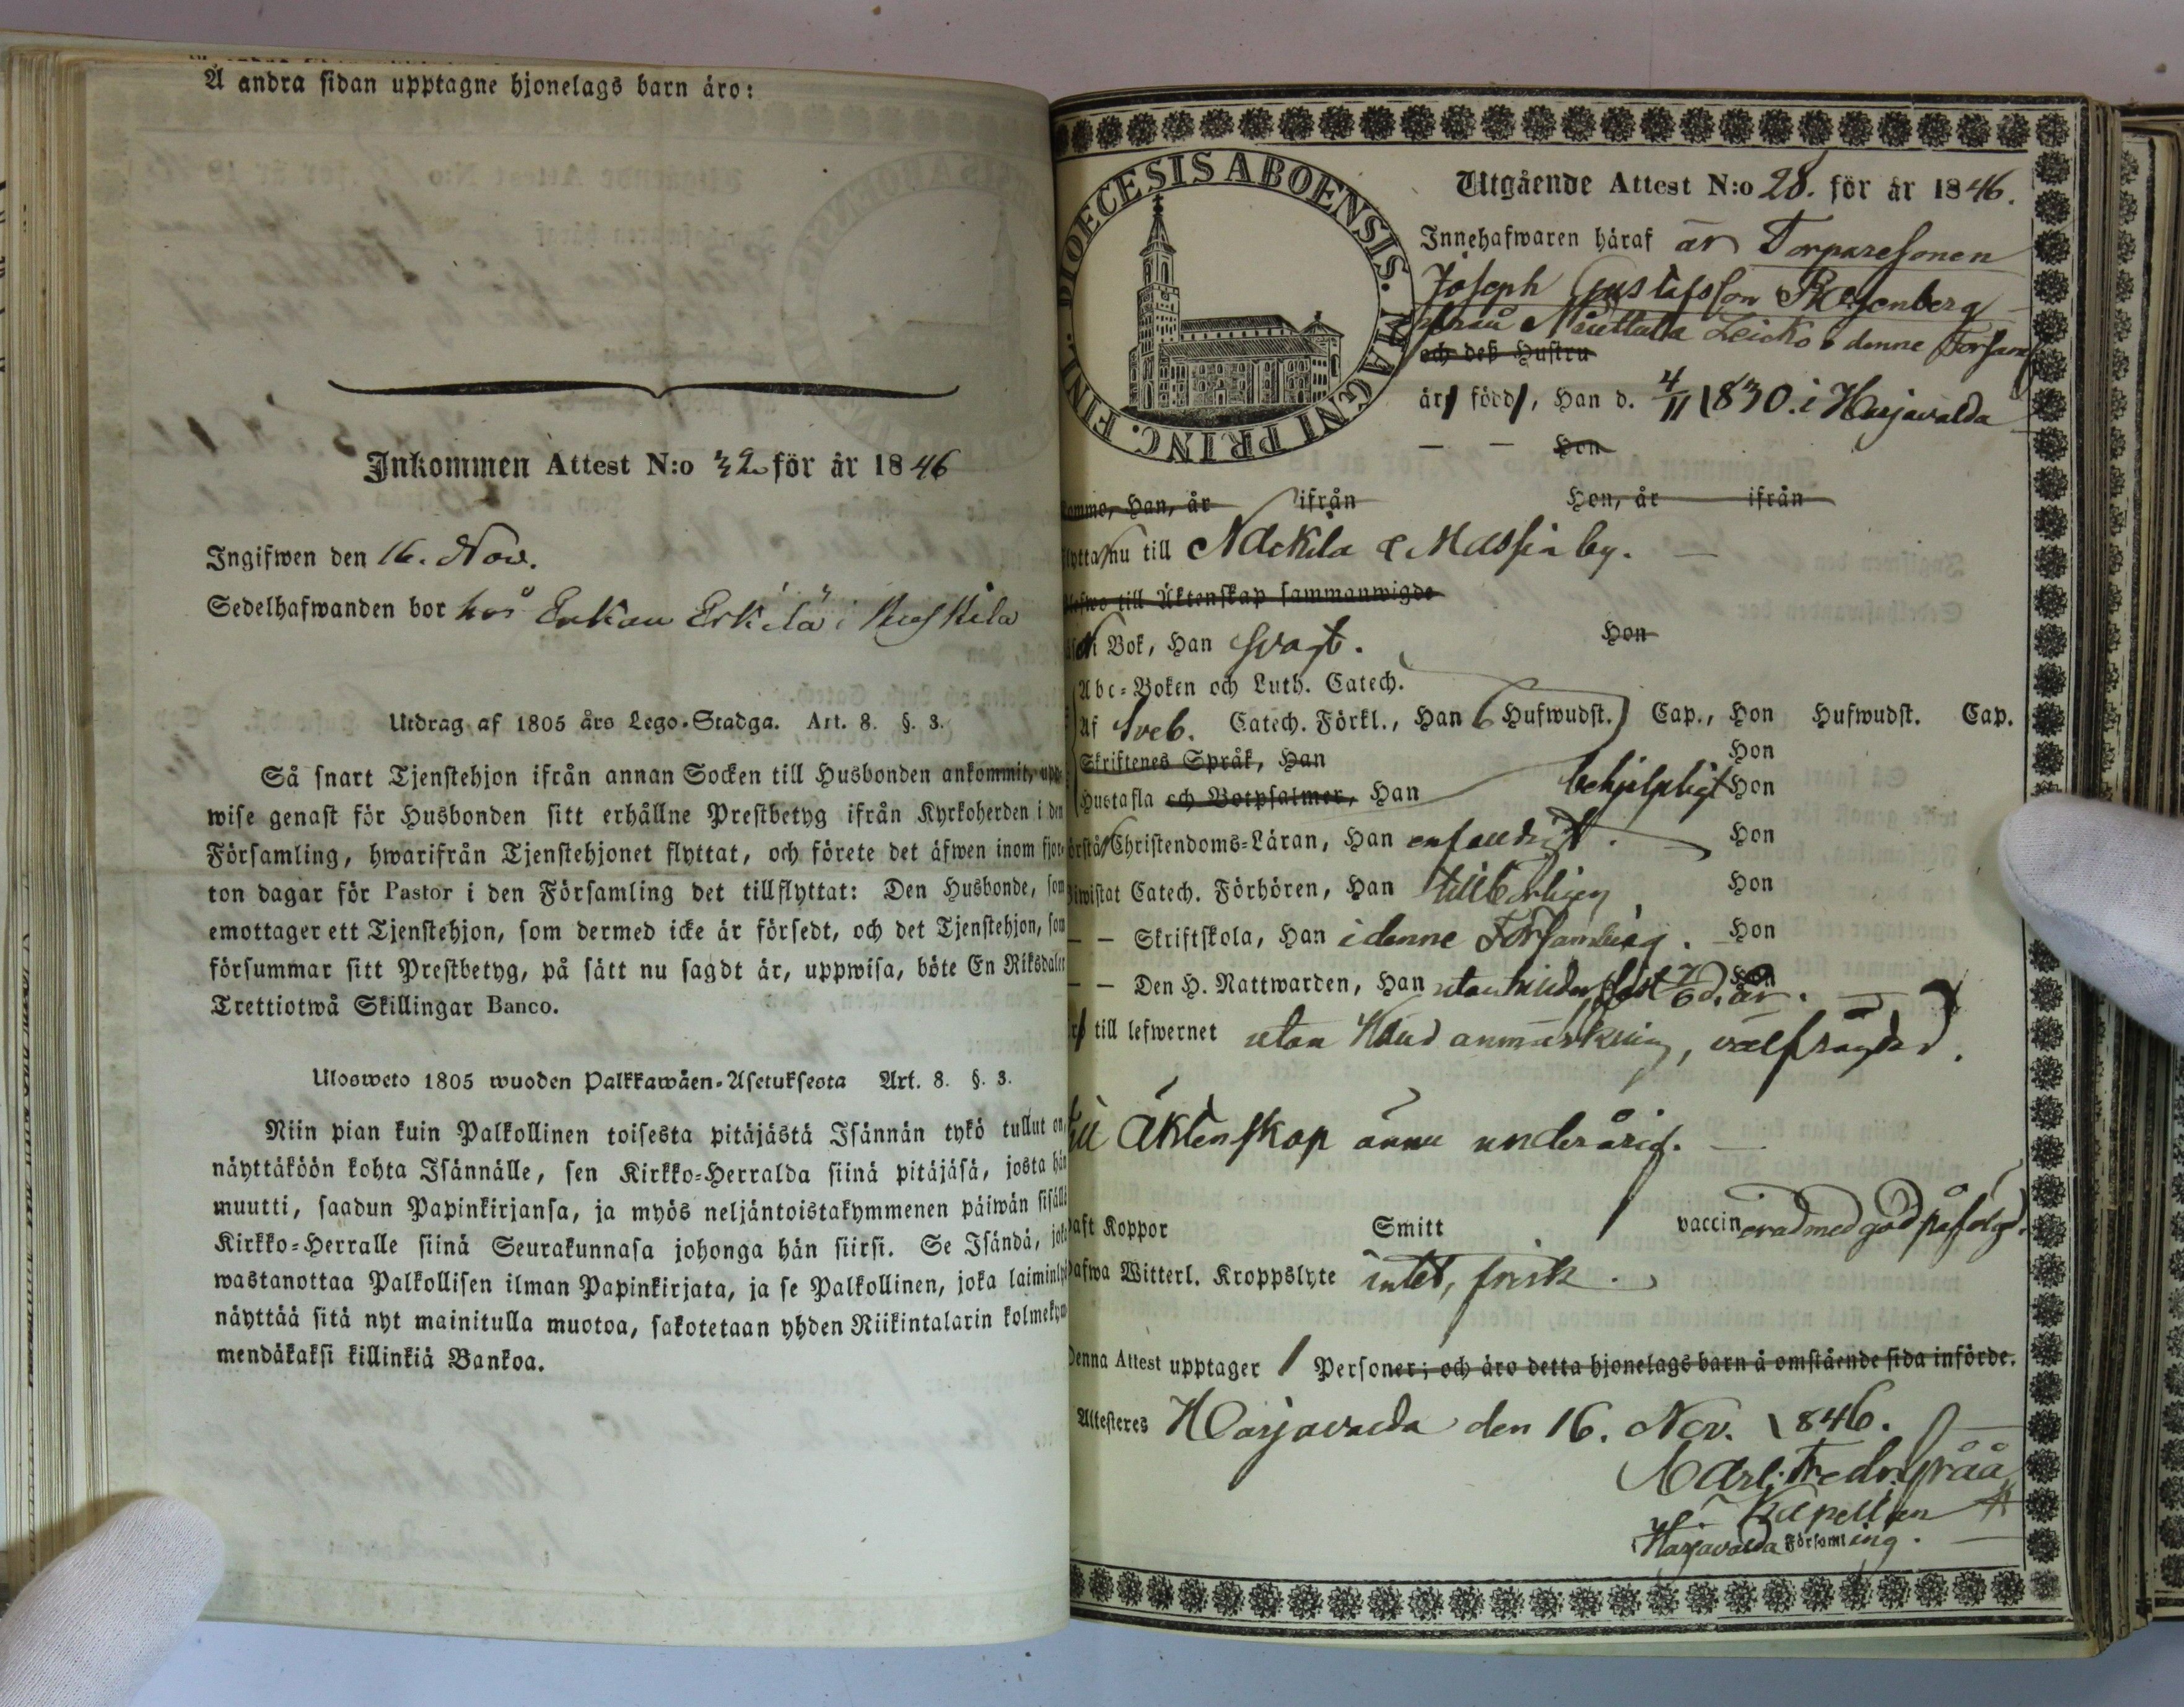 Å andra sidan upptagne hjonelags barn äro:
Inkommen Attest N:o 32 för år 1846
Ingifwen den 16. Nov.
Sedelhafwanden bor hos Erkan Erkilä i
Utdrag af 1805 års Lego-Stadga. Art. 8. §. 3.
Så snart Tjenstehjon ifrån annan Socken till Husbonden ankommit, upp-
wise genast för Husbonden sitt erhållne Prestbetyg ifrån Kyrkoherden i den
Församling, hwarifrån Tjenstehjonet flyttat, och förete det äfwen inom fjor-
ton dagar för Pastor i den Församling det tillflyttat: Den Husbonde, som
emottager ett Tjenstehjon, som dermed icke är försedt, och det Tjenstehjon, som
försummar sitt Prestbetyg, på sätt nu sagdt är, uppwisa, böte En Riksdaler
Trettiotwå Skillingar Banco.
Ulosweto 1805 wuoden Palkkawäen-Asetuksesta Art. 8. §. 3.
Niin pian kuin Palkollinen toisesta pitäjästä Isännän tykö tullut on,
näyttäköön kohta Isännälle, sen Kirkko-Herralda siinä pitäjäsä, josta hän
muutti, saadun Papinkirjansa, ja myös neljäntoistakymmenen päiwän sisällä
Kirkko-Herralle siinä Seurakunnasa johonga hän siirsi. Se Isändä, joka
wastanottaa Palkollisen ilman Papinkirjata, ja se Palkollinen, joka laiminlyö
näyttää sitä nyt mainitulla muotoa, sakotetaan yhden Riikintalarin kolmekym-
mendäkaksi killinkiä Bankoa.
DIOECESIS ABOENSIS. MAGNI PRINC. FINL.
Utgående Attest N:o 28. för år 1846.
Innehafwaren häraf är Torparesonen
Joseph Gustafsson Rosenberg
ifrån Leicko i denne Församl
och deß Hustru
är född, Han d. 4/11 1830. i Harjavalda
— — Hon
kommo, Han, år ifrån Hon, år ifrån
flytta nu till Nackila & Massia by. —
Blefwo till Äktenskap sammanwigde
i Bok, Han svagt. Hon
Abc-Boken och Luth. Catech.
Af Sveb. Catech. Förkl., Han 6 Hufwudst. Cap., Hon Hufwudst. Cap.
Skriftenes Språk, Han Hon
Hustafla och Botpsalmer, Han behjelpligt Hon
Förstå Christendoms-Läran, Han enfaldigt. Hon
Biwistat Catech. Förhören, Han tillbörligen Hon
— — Skriftskola, Han i denne Församling. Hon
— — Den H. Nattwarden, Han utan hinder sist 7/6 d. år. Hon
till lefwernet utan känd anmärkning, välfrägdad.
till Äktenskap ännu underårig. —
haft Koppor Smitt vaccinerad med god påfölgd.
hafwa Witterl. Kroppslyte intet, frisk.
Denna Attest upptager 1 Personer; och äro detta hjonelags barn å omstående sida införde.
Attesteres Harjavalda den 16. Nov. 1846.
Carl Fredr. Gråå
Kapellan
Harjavalda Församling.